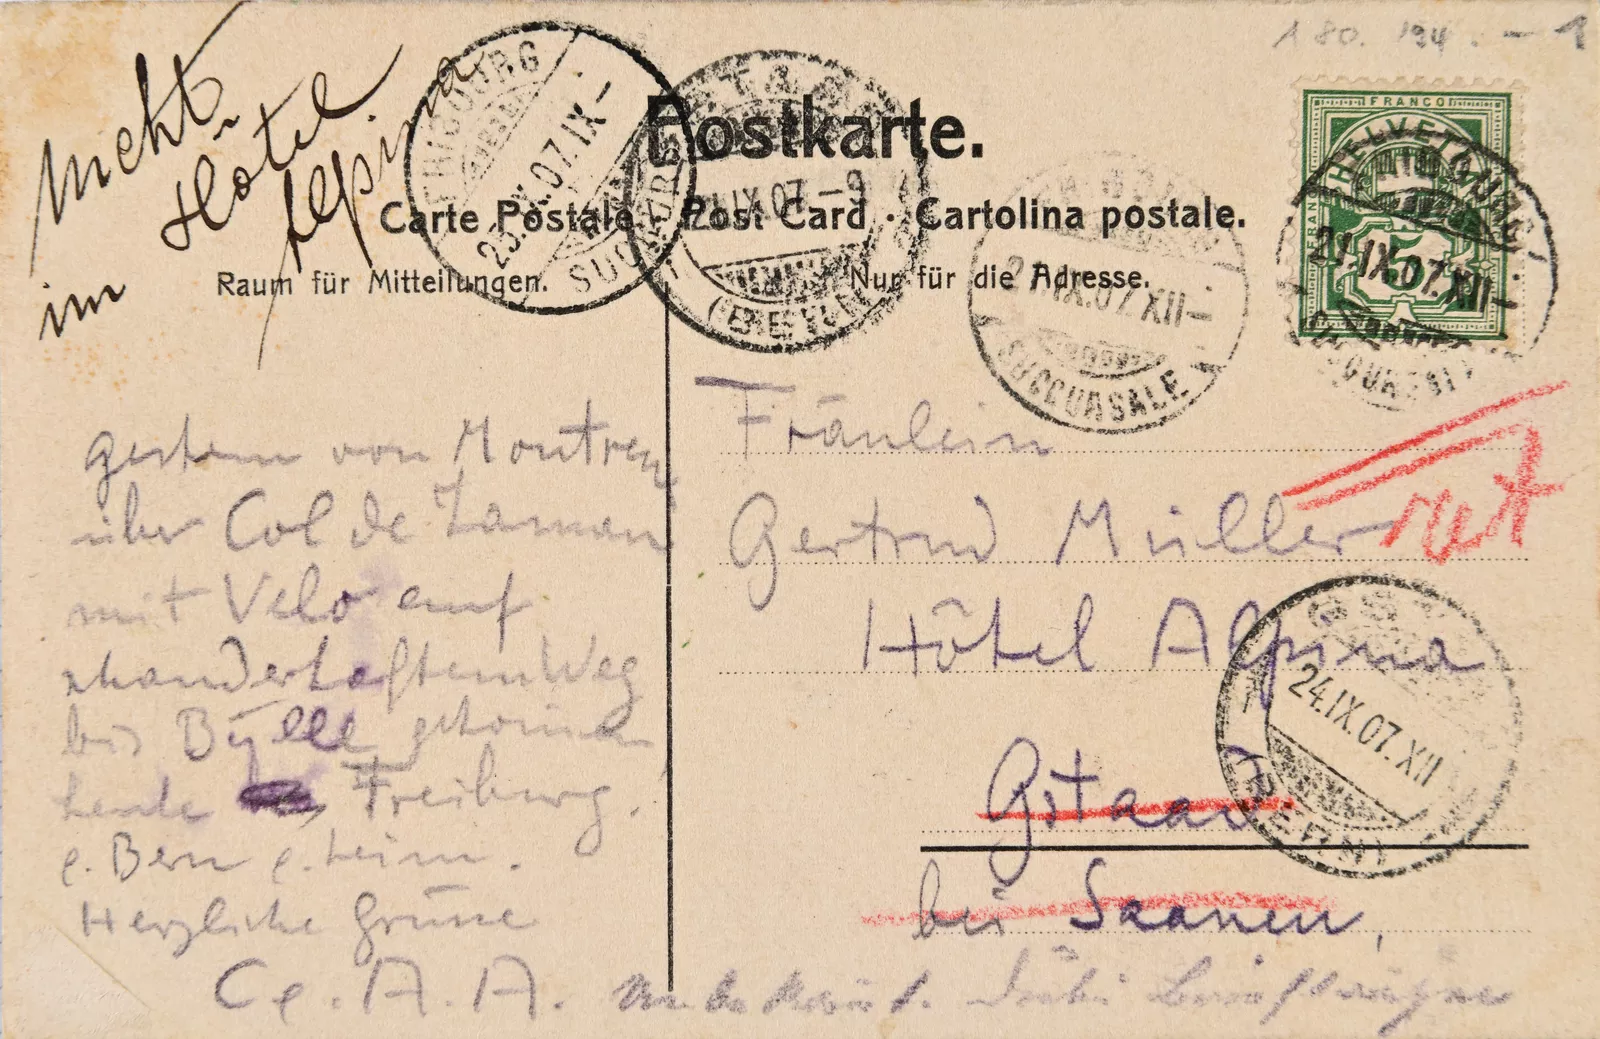 Nicht
im
Hôtel
Alpina
180. 194. – 1
Postkarte.
Carte Postale. · Post Card · Cartolina postale.
Raum für Mitteilungen.
Nur für die Adresse.
FRIBOURG
23.IX.07.IX–
SUCCURSALE
GSTAAD
21.IX.07.–9
(BERN)
21.IX.07.XII–
SUCCURSALE
FRANCO
HELVETIA
5
FRIBOURG
21.IX.07.XII–
SUCCURSALE
gestern von Montreux
über Col de Jaman
mit Velo auf
schauderhaftem Weg
bis Bülle gekommen
heute Freiburg.
e. Bern e. heim.
Herzliche Grüsse
A. A.
Fräulein
Gertrud Müller
Hôtel Alpina
Gstaad
bei Saanen,
ret
GSTAAD
24.IX.07.XII
(BERN)